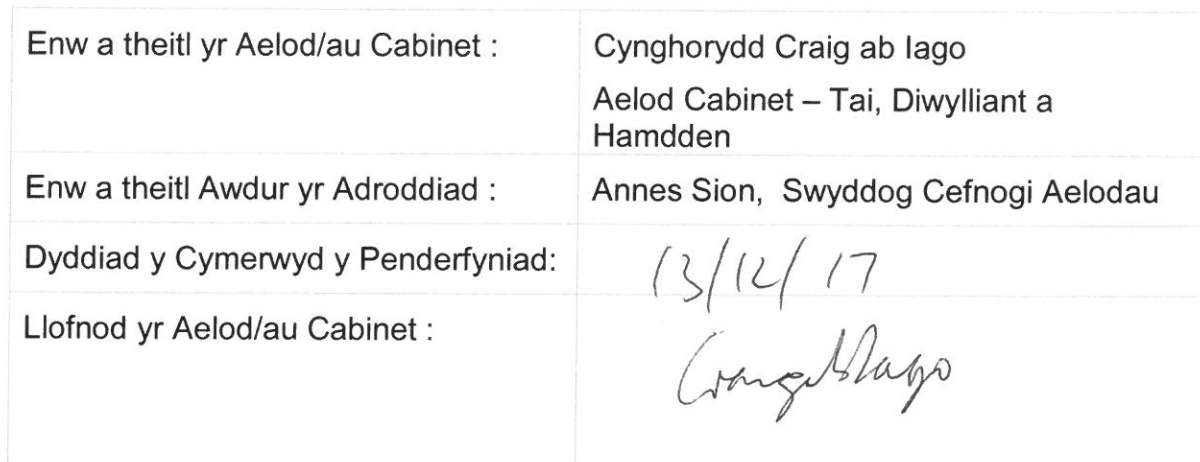 Enw a theitl yr Aelod/au Cabinet :
Cynghorydd Craig ab Iago
Aelod Cabinet – Tai, Diwylliant a
Hamdden
Enw a theitl Awdur yr Adroddiad :
Annes Sion, Swyddog Cefnogi Aelodau
Dyddiad y Cymerwyd y Penderfyniad:
13/12/17
Llofnod yr Aelod/au Cabinet :
Craig ab Iago